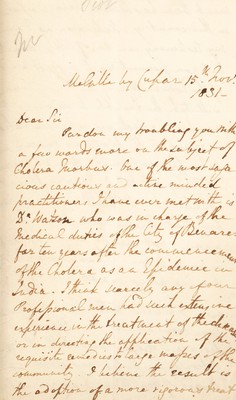 Melville by Cupar 15th Novr
1831 -
Dear Sir
Pardon my troubling you with
a few words more on the subject of
Cholera Morbus. One of the most saga
cious cautious and acute minded
practitioners I have ever met with is
Dr Watson who was in charge of the
Medical duties of the City of Benares
for ten years after the commencement
of the Cholera as an Epidemic in
India. I think scarcely any of our
Professional men had such extensive
experience in the treatment of the disease
or in directing the application of the
requisite aid to large masses of the
community. I believe the result is
the adoption of a more vigorous treat